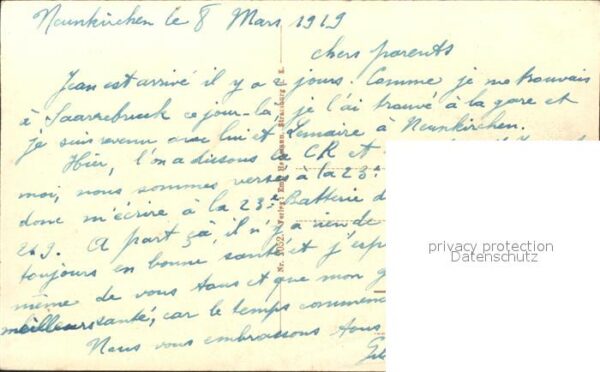 Neunkirchen le 8 Mars 1919
chers parents
Jean est arrivé il y a 2 jours. Comme je me trouvais
à Saarrebruck ce jour-là, je l'ai trouvé à la gare et
je suis revenu avec lui et Lemaire à Neunkirchen.
Hier, l'on a dissous la CR et
moi, nous sommes versés à la 23e
donc m'écrire à la 23e Batterie d
269. A part ça, il n'y a rien de
toujours en bonne santé et j'esp
même de vous tous et que mon g
meilleure santé, car le temps commence
Nous vous embrassons tous
Nr. 1052. Verlag: Emil Hartmann, Strassburg i. E.
privacy protection
Datenschutz